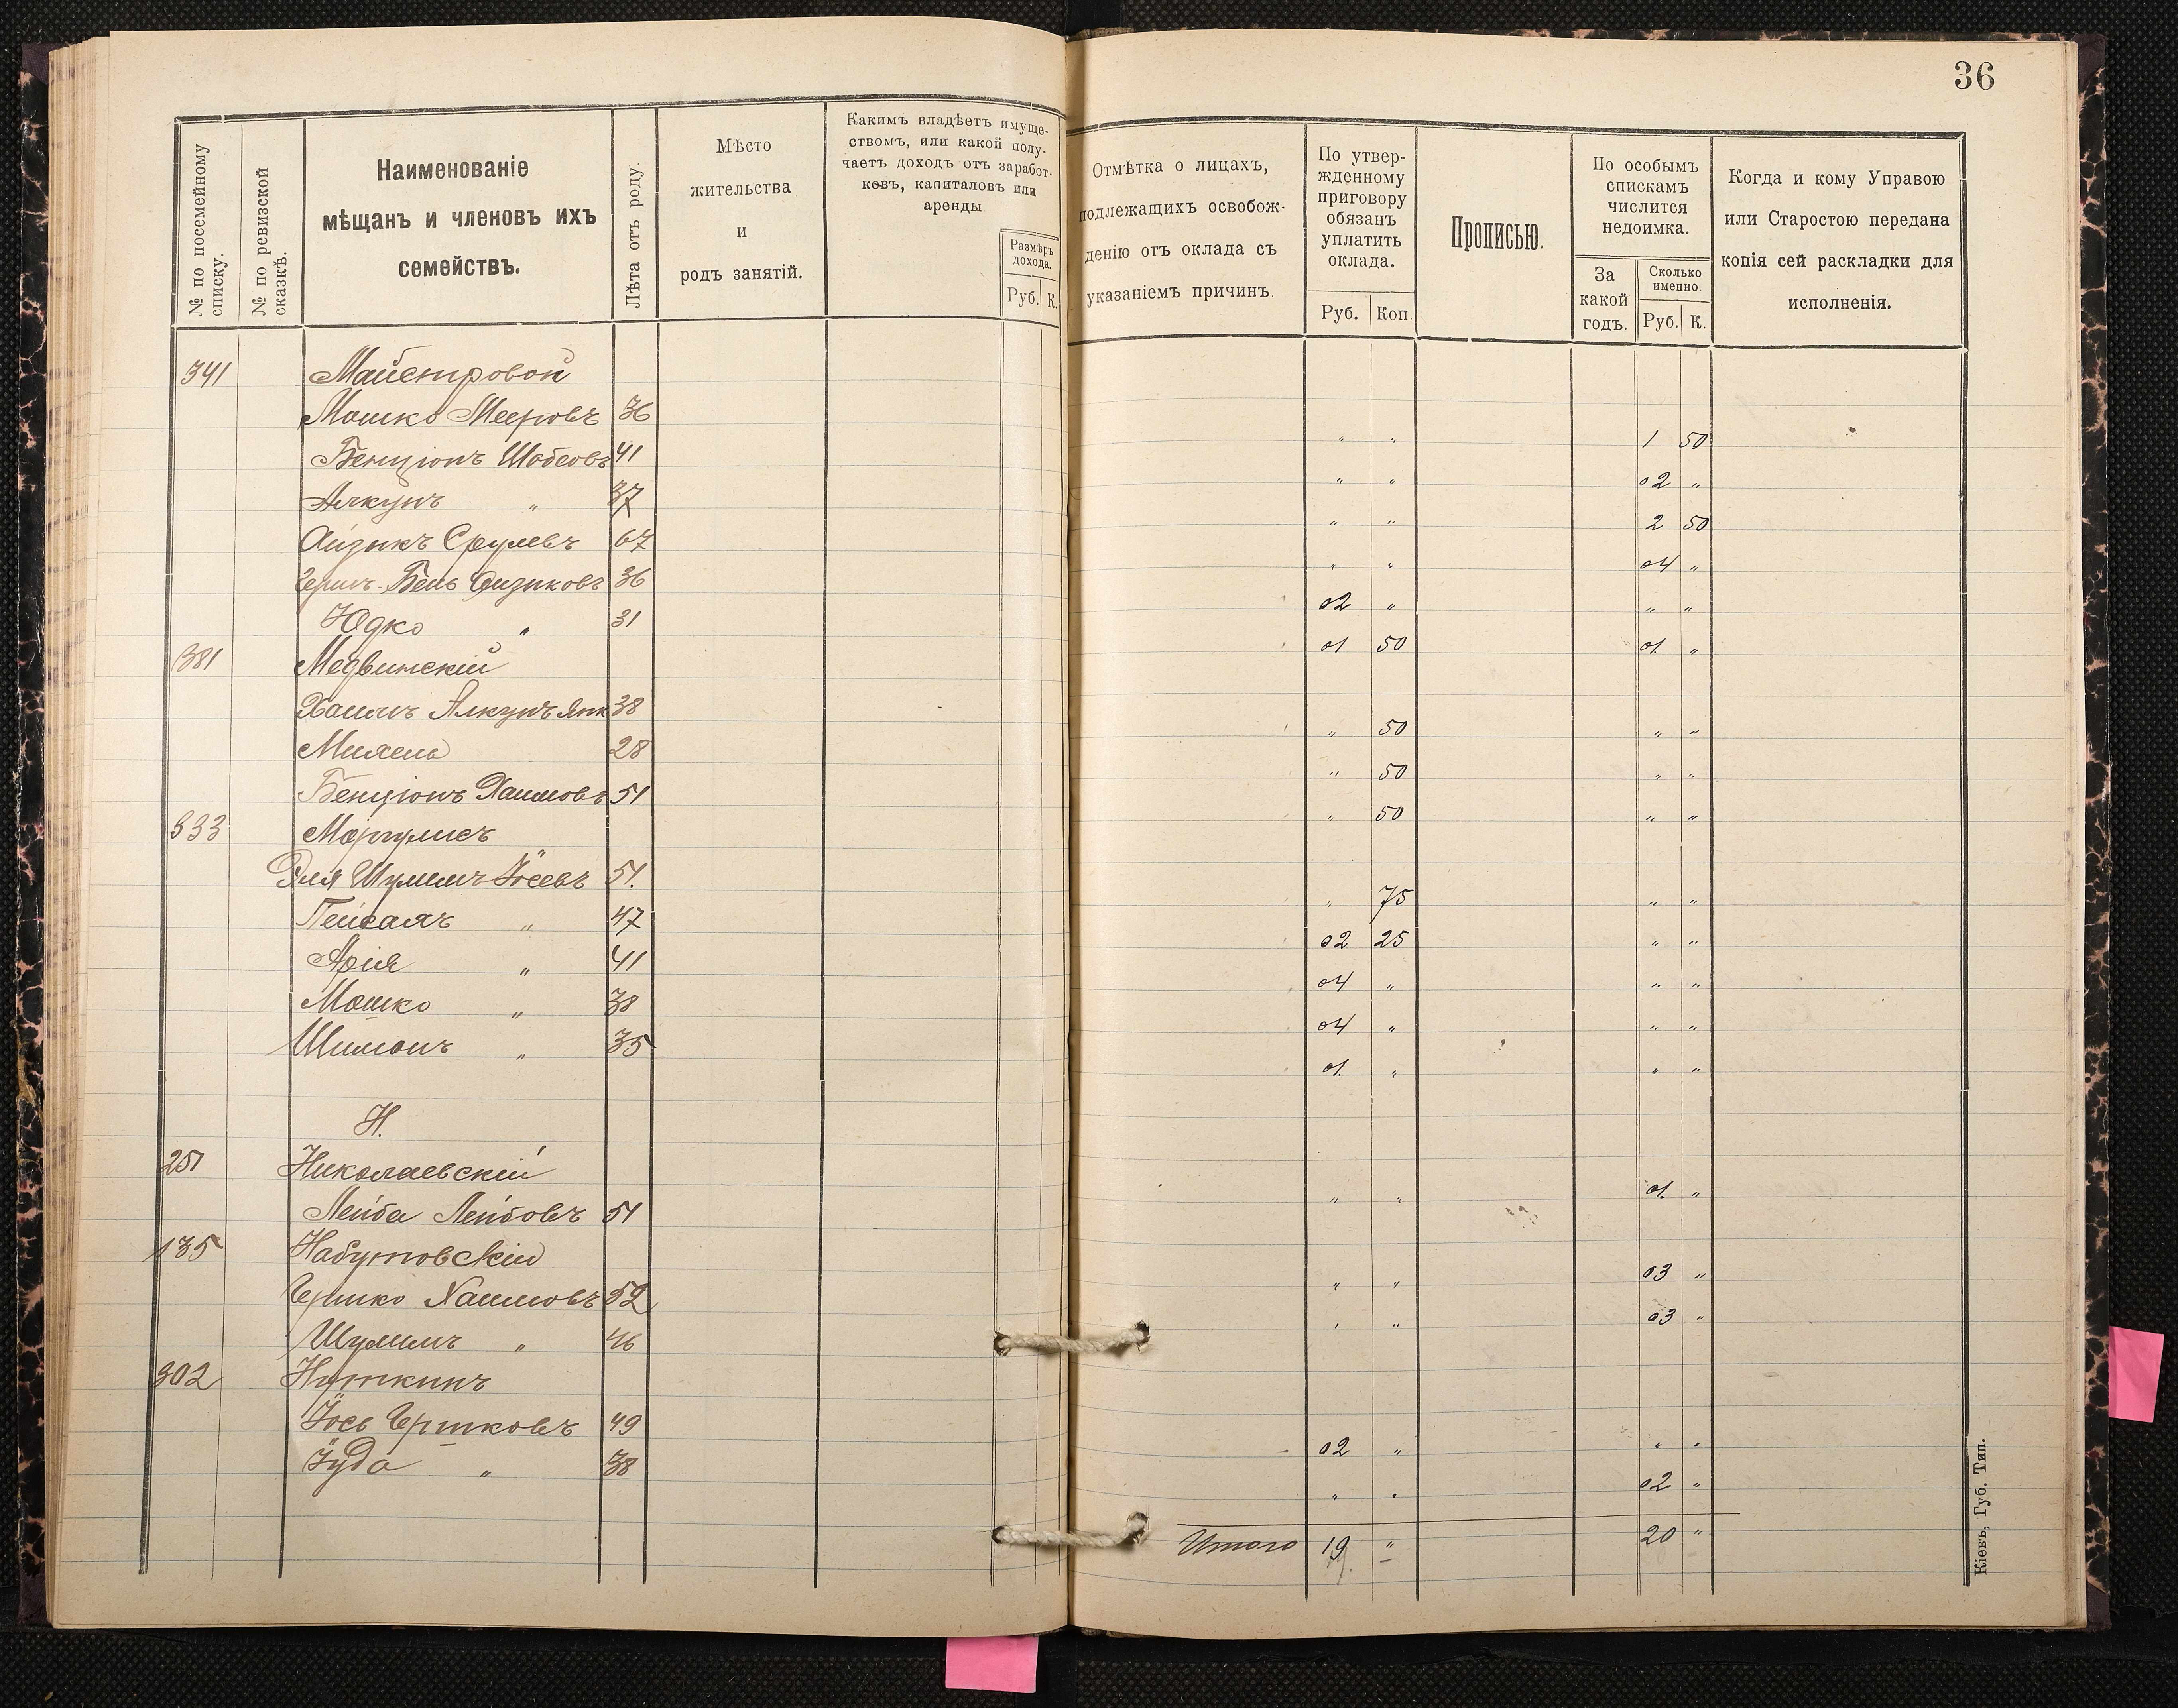 36
№ по посемейному списку.
№ по ревизской сказкѣ.
Наименованіе
мѣщанъ и членовъ ихъ
семействъ.
Лѣта отъ роду.
Мѣсто
жительства
и
родъ занятій.
Какимъ владѣетъ имуще-
ствомъ, или какой полу-
чаетъ доходъ отъ заработ-
ковъ, капиталовъ или
аренды
Размѣръ
дохода.
Руб. К.
Отмѣтка о лицахъ,
подлежащихъ освобож-
денію отъ оклада съ
указаніемъ причинъ.
По утвер-
жденному
приговору
обязанъ
уплатить
оклада.
Руб. Коп.
Прописью.
По особымъ
спискамъ
числится
недоимка.
За
какой
годъ.
Сколько
именно.
Руб. К.
Когда и кому Управою
или Старостою передана
копія сей раскладки для
исполненія.
341 Майстровой
Мошко Мееровъ 36 " " 1 50
Бенціонъ Шобсовъ 41 " " 02 "
" 37 " " 2 50
Айзыкъ Срулевъ 67 " " 04 "
Гершъ-Беръ Айзиковъ 36 02 " " "
Юдко " 31 01 50 01 "
381 Медвинскій
Хаимъ Янк 38 " 50 " "
28 " 50 " "
Бенціонъ Хаимовъ 51 " 50 " "
333 Моргулисъ
Эля Шулимъ Іосевъ 51. " 75 " "
Пейсахъ " 47 02 25 " "
Арія " 41 04 " " "
Мошко " 38 04 " " "
Шимонъ " 35 01 " " "
Н.
251 Николаевскій
Лейба Лейбовъ 51 " " 01 "
135 Набутовскій
Гершко Хаимовъ 52 " " 03 "
Шулимъ " 46 " " 03 "
302 Нуткинъ
Іось Гершковъ 49 02 " " "
Іуда " 38 " " 02 "
Итого 19 " 20 "
Кіевъ, Губ. Тип.